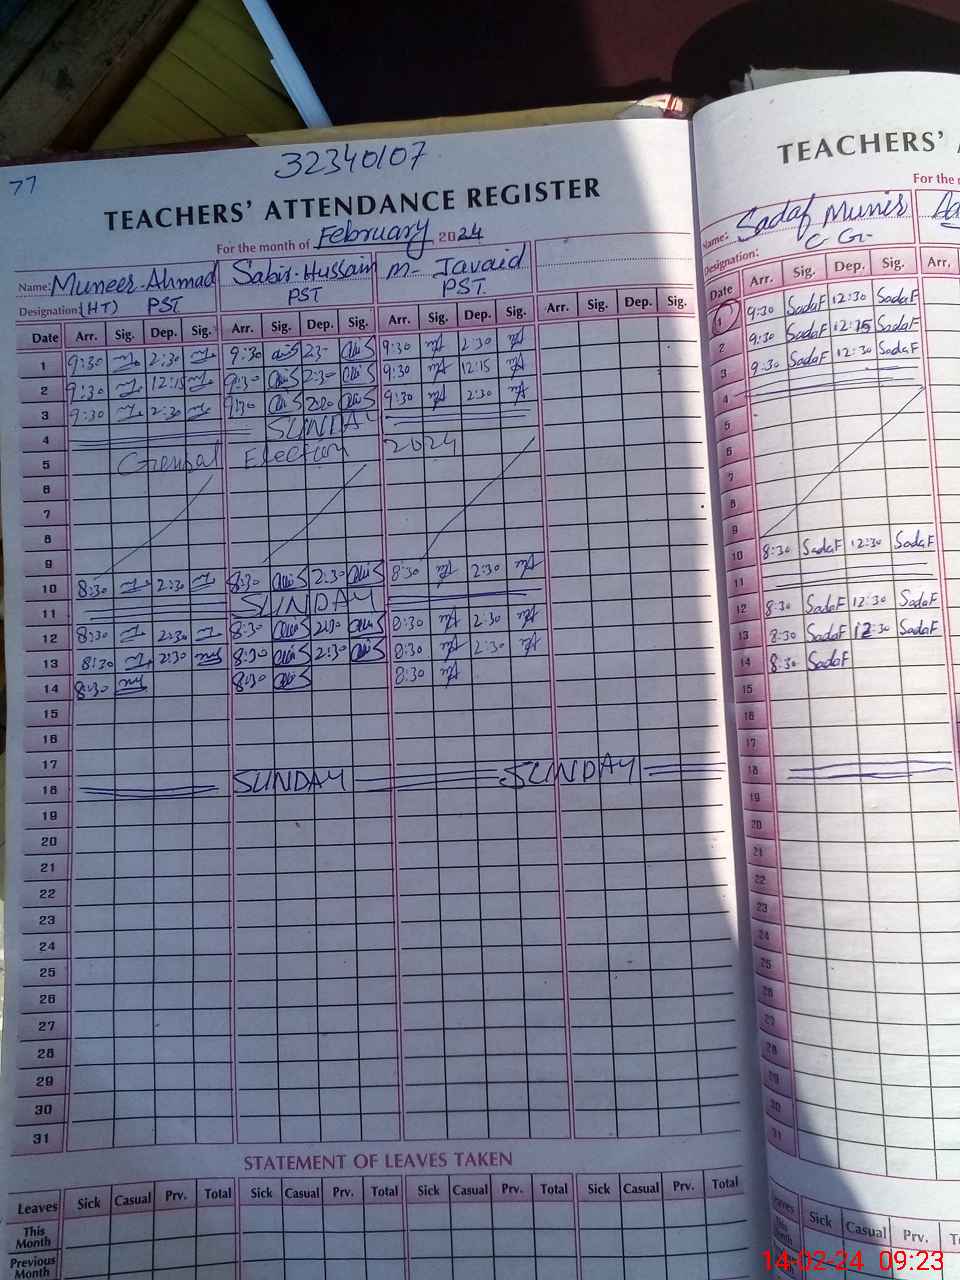 77
32340107
TEACHERS' ATTENDANCE REGISTER
For the month of February 2024
Name: Muneer Ahmad Sabir Hussain M- Javaid
Designation: (HT) PST PST PST
Date Arr. Sig. Dep. Sig. Arr. Sig. Dep. Sig. Arr. Sig. Dep. Sig. Arr. Sig. Dep. Sig.
1 9:30 2:30 9:30 2:30 9:30 2:30
2 9:30 12:15 9:30 2:30 9:30 12:15
3 9:30 2:30 9:30 2:30 9:30 2:30
4 SUNDAY
5 General Election 2024
6
7
8
9
10 8:30 2:30 8:30 2:30 8:30 2:30
11 SUNDAY
12 8:30 2:30 8:30 2:30 8:30 2:30
13 8:30 2:30 8:30 2:30 8:30 2:30
14 8:30 8:30 8:30
15
16
17
18 SUNDAY SUNDAY
19
20
21
22
23
24
25
26
27
28
29
30
31
STATEMENT OF LEAVES TAKEN
Leaves Sick Casual Prv. Total Sick Casual Prv. Total Sick Casual Prv. Total Sick Casual Prv. Total
This Month
Previous Month
TEACHERS'
For the
Name: Sadaf Munir
Designation: C G-
Date Arr. Sig. Dep. Sig. Arr.
1 9:30 SadaF 12:30 SadaF
2 9:30 SadaF 12:15 SadaF
3 9:30 SadaF 12:30 SadaF
4
5
6
7
8
9
10 8:30 SadaF 12:30 SadaF
11
12 8:30 SadaF 12:30 SadaF
13 8:30 SadaF 12:30 SadaF
14 8:30 SadaF
15
16
17
18
19
20
21
22
23
24
25
26
27
28
29
30
31
Leaves Sick Casual Prv.
This Month
14-02-24 09:23